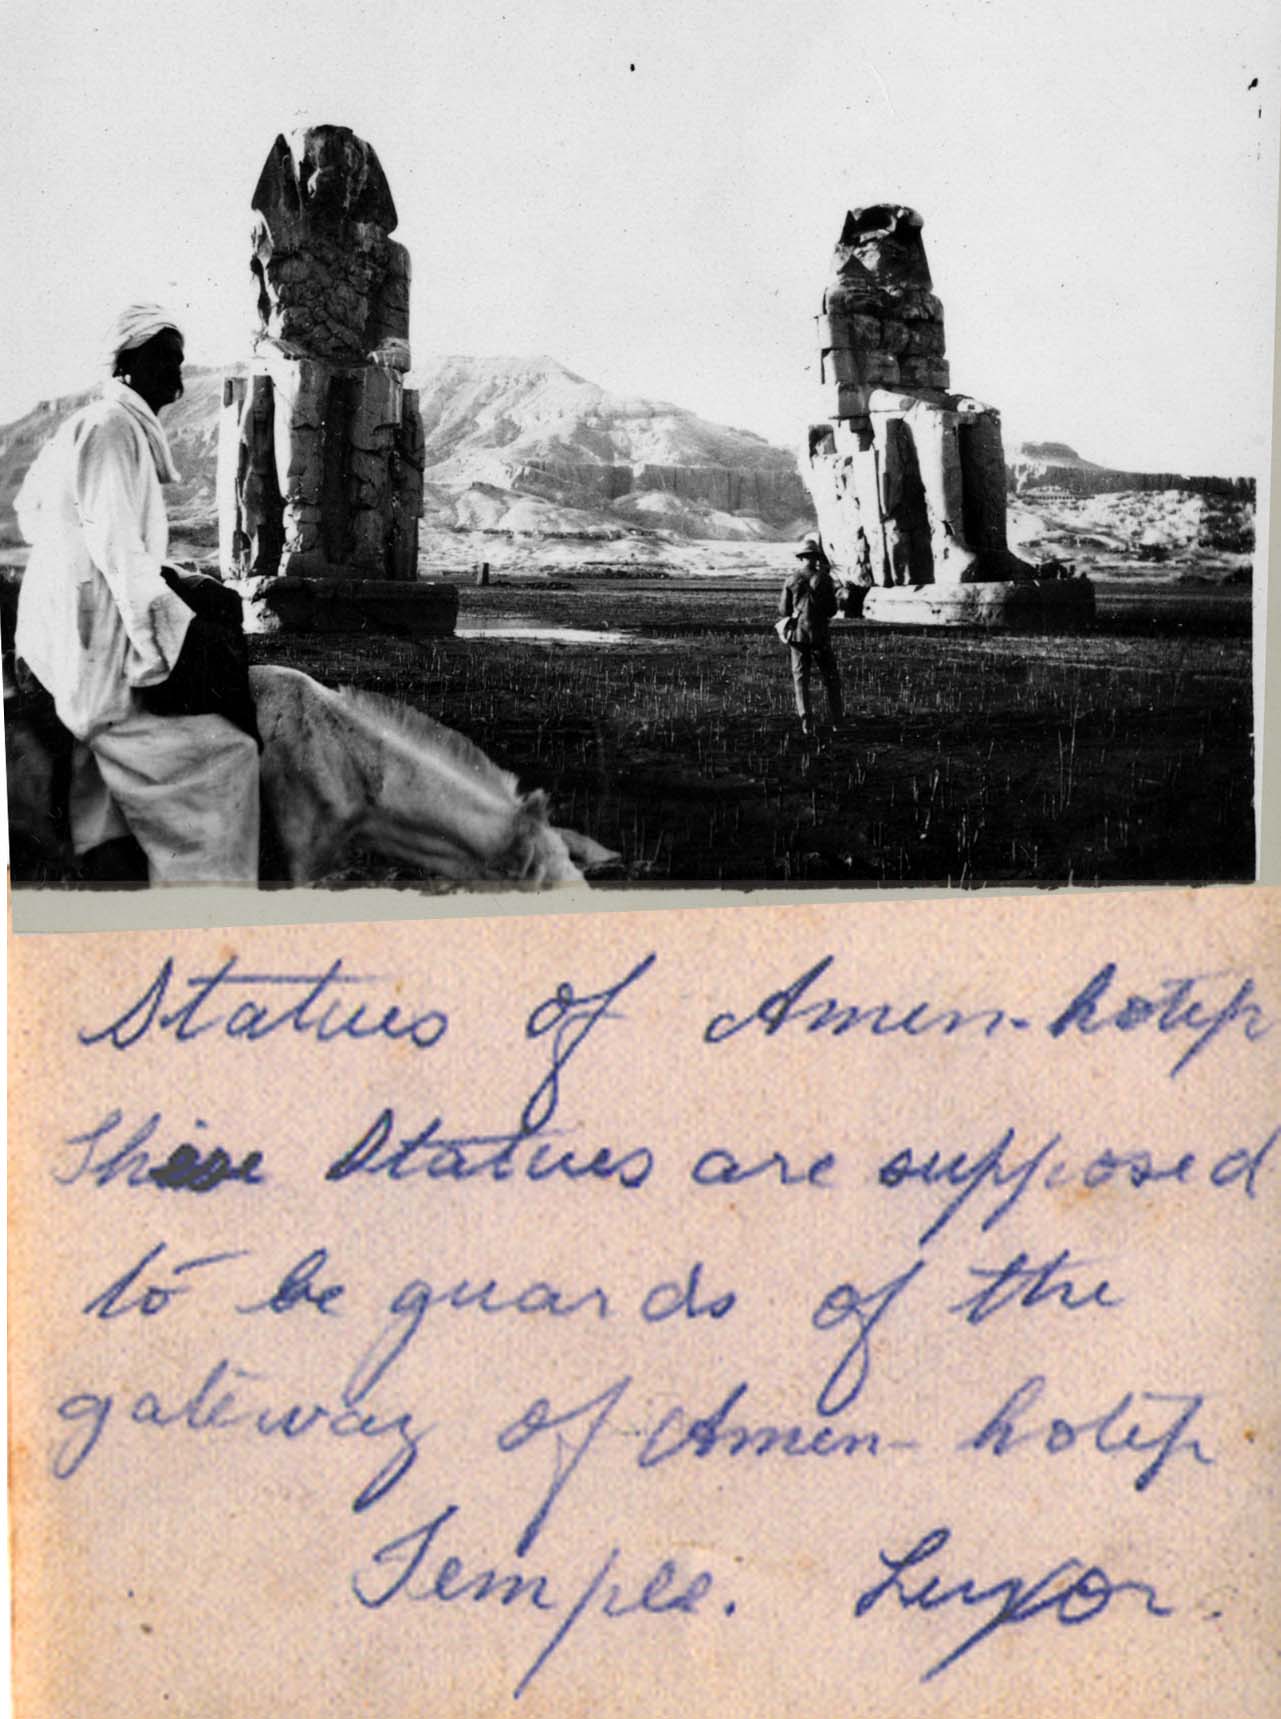 Statues of Amen-hotep
These Statues are supposed
to be guards of the
gateway of Amen-hotep
Temple. Luxor.